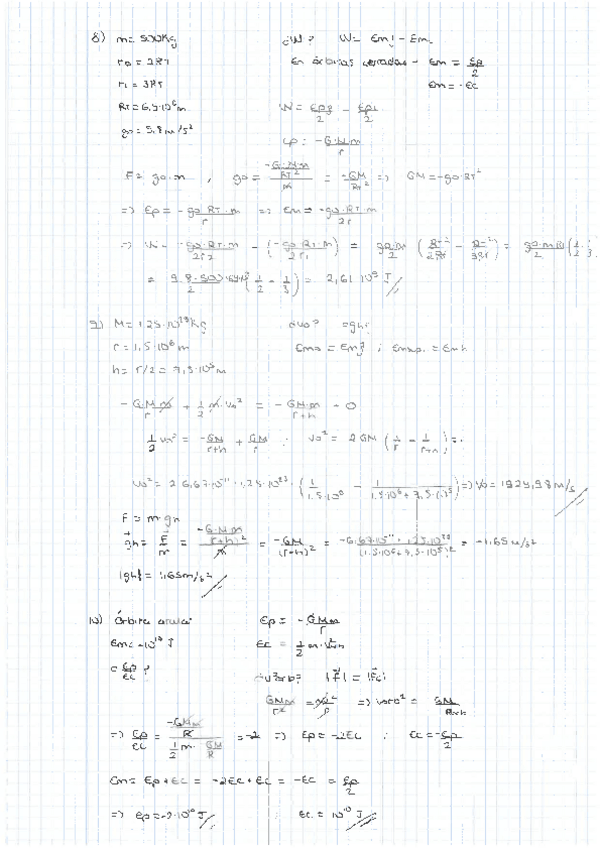 8) m = 500 Kg   ¿W?   W = Emf - Emi
r0 = 2RT   En órbitas cerradas - Em = Ep/2
r1 = 3RT   Em = -Ec
RT = 6,4·10^6 m   W = Epf/2 - Epi/2
g0 = 9,8 m/s²
Ep = -G·M·m/r
F = g0·m , g0 = (-G·M·m/RT²)/m = -GM/RT² => GM = -g0·RT²
=> Ep = -g0·RT·m/r => Em = -g0·RT·m/2r
= 9,8·500·6,4·10^6/2 (1/2 - 1/3) = 2,61·10^9 J
9) M = 1,25·10^23 Kg   ¿v0?   ¿gh?
r = 1,5·10^6 m   Em0 = Emf ; Emsup. = Emh
h = r/2 = 7,5·10^5 m
-G·M·m/r + 1/2 m·v0² = -G·M·m/r+h + 0
1/2 v0² = -GM/r+h + GM/r   v0² = 2GM (1/r - 1/r+h) =
v0² = 2·6,67·10^-11·1,25·10^23·(1/1,5·10^6 - 1/1,5·10^6+7,5·10^5) => v0 = 1924,98 m/s
F = m·gh
gh = F/m = (-G·M·m/(r+h)²)/m = -GM/(r+h)² = -6,67·10^-11·1,25·10^23/(1,5·10^6+7,5·10^5)² = -1,65 m/s²
|gh| = 1,65 m/s²
10) Órbita   Ep = -GMm/r
Em = -10^10 J   Ec = 1/2 m·v²
Ep/Ec ?
¿vorb?   |F| = |Fc|
=> Ep/Ec = (-GMm/R)/(1/2 m·GM/R) = -2 => Ep = -2Ec ; Ec = -Ep/2
Em = Ep + Ec = -2Ec + Ec = -Ec = Ep/2
=> Ep = -2·10^10 J   Ec = 10^10 J